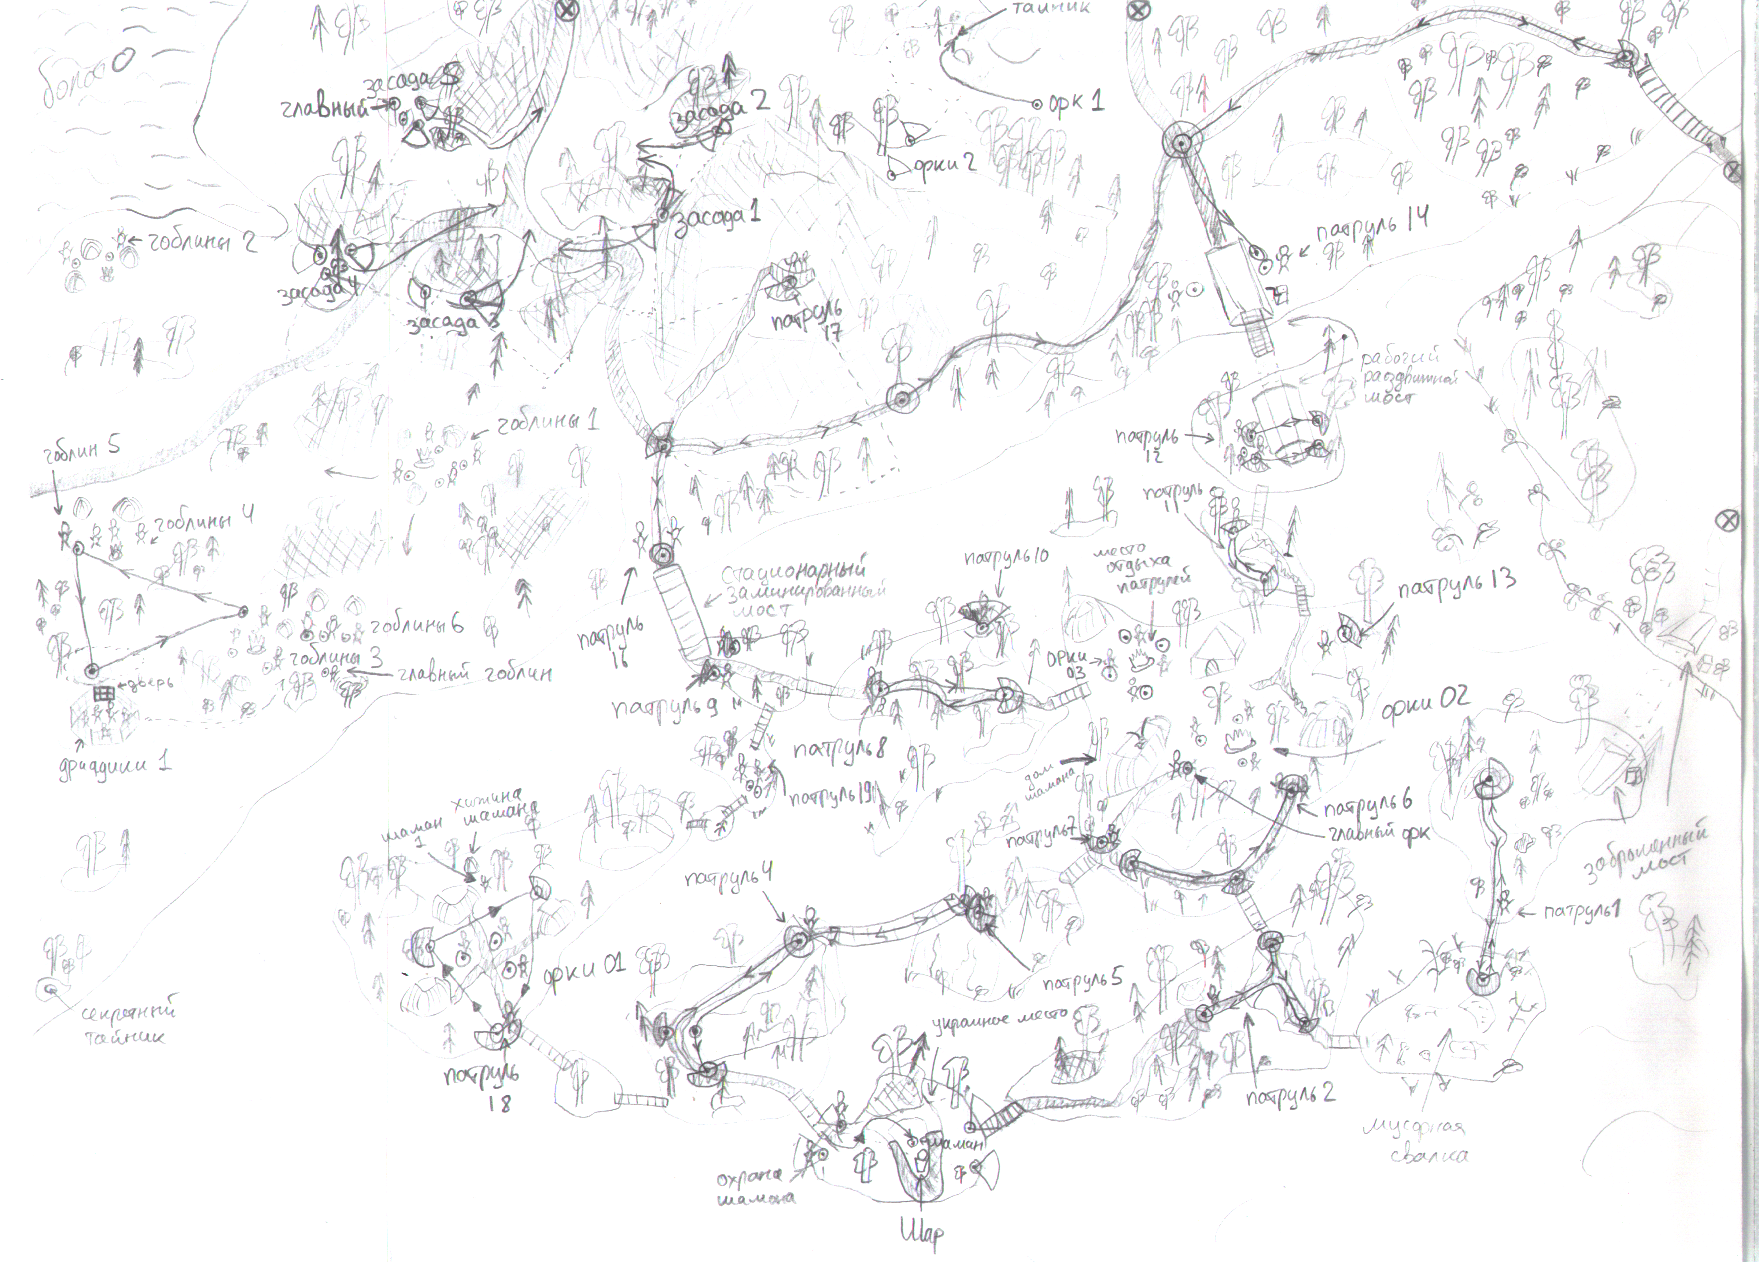 тайник
болото
засада 5
главный
засада 2
орк 1
орки 2
засада 1
патруль 14
гоблины 2
засада 4
засада 3
патруль
17
рабочий
раздвижной
мост
гоблины 1
гоблин 5
патруль
12
гоблины 4
патруль
11
стационарный
заминированный
мост
патруль 10
место
отдыха
патрулей
патруль 13
гоблины 6
патруль
16
гоблины 3
главный гоблин
дверь
орки
03
патруль 9
орки 02
патруль 8
дриадики 1
дом
шамана
патруль 19
хижина
шамана
шаман
1
патруль 6
патруль 7
главный орк
заброшенный
мост
патруль 4
патруль 1
орки 01
патруль 5
секретный
тайник
укромное место
патруль
18
патруль 2
мусорная
свалка
шаман
охрана
шамана
Шар